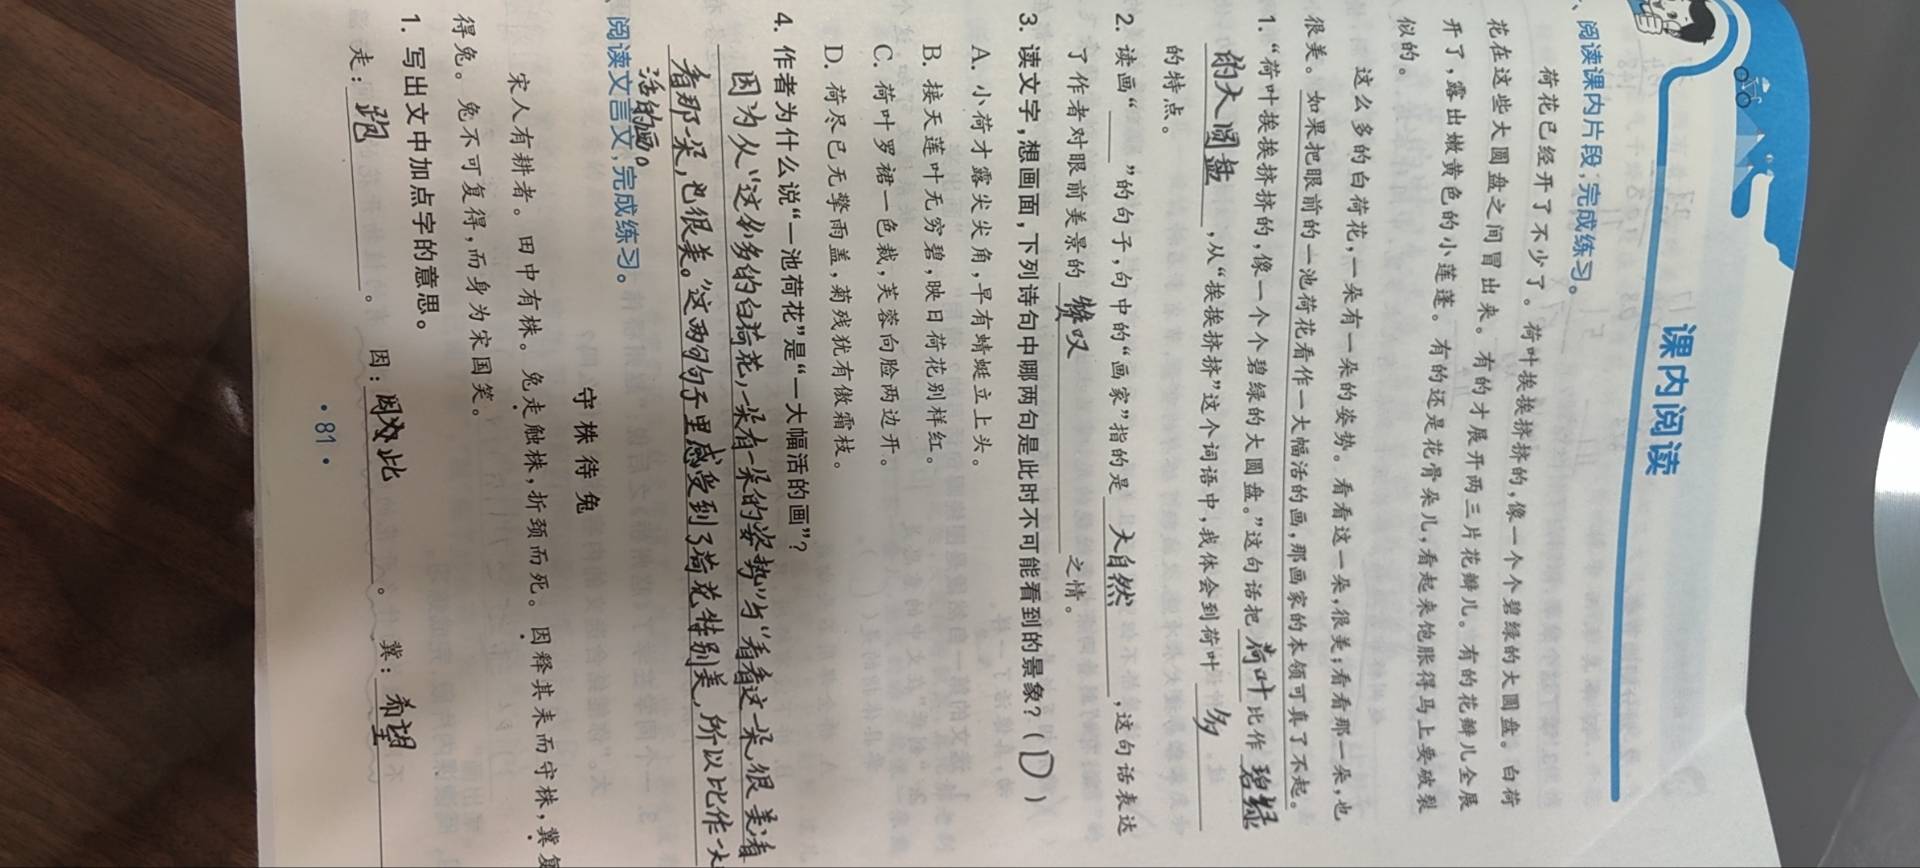 课内阅读
、阅读课内片段,完成练习。
荷花已经开了不少了。荷叶挨挨挤挤的,像一个个碧绿的大圆盘。白荷
花在这些大圆盘之间冒出来。有的才展开两三片花瓣儿。有的花瓣儿全展
开了,露出嫩黄色的小莲蓬。有的还是花骨朵儿,看起来饱胀得马上要破裂
似的。
这么多的白荷花,一朵有一朵的姿势。看看这一朵,很美;看看那一朵,也
很美。如果把眼前的一池荷花看作一大幅活的画,那画家的本领可真了不起。
1.“荷叶挨挨挤挤的,像一个个碧绿的大圆盘。”这句话把 荷叶 比作 碧绿
的大圆盘 ,从“挨挨挤挤”这个词语中,我体会到荷叶 多
的特点。
2. 读画“____”的句子,句中的“画家”指的是 大自然 ,这句话表达
了作者对眼前美景的 赞叹 之情。
3. 读文字,想画面,下列诗句中哪两句是此时不可能看到的景象?( D )
A. 小荷才露尖尖角,早有蜻蜓立上头。
B. 接天莲叶无穷碧,映日荷花别样红。
C. 荷叶罗裙一色裁,芙蓉向脸两边开。
D. 荷尽已无擎雨盖,菊残犹有傲霜枝。
4. 作者为什么说“一池荷花”是“一大幅活的画”?
因为从“这么多的白荷花,一朵有一朵的姿势”与“看看这一朵,很美;看
看那一朵,也很美。”这两句句子里感受到了荷花特别美,所以比作一大
活的画。
阅读文言文,完成练习。
守株待兔
宋人有耕者。田中有株。兔走触株,折颈而死。因释其耒而守株,冀复
得兔。兔不可复得,而身为宋国笑。
1. 写出文中加点字的意思。
走: 跑 。 因: 因此 。 冀: 希望
·81·